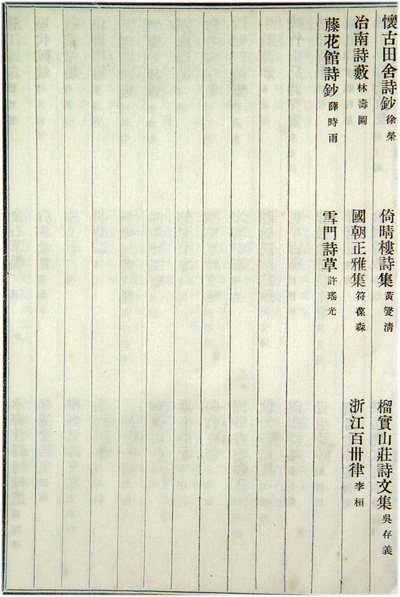 懷古田舍詩鈔 徐榮 倚晴樓詩集 黃燮清 榴實山莊詩文集 吳存義
冶南詩藪 林壽圖 國朝正雅集 符葆森 浙江百卌律 李桓
藤花館詩鈔 薛時雨 雪門詩草 許瑤光